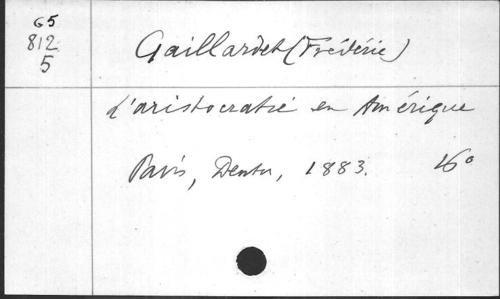 G5
812
5
Gaillardet (Frédéric)
L'aristocratie en Amérique
Paris, Dentu, 1883. 16°